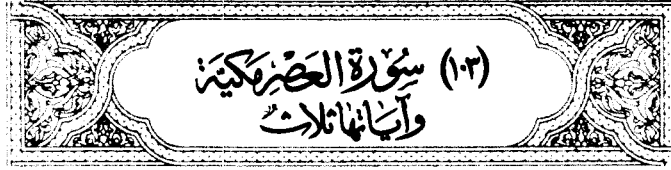 (١٠٣) سُورَة العَصْر مَكيَّة
وَآيَاتهَا ثلاثٌ